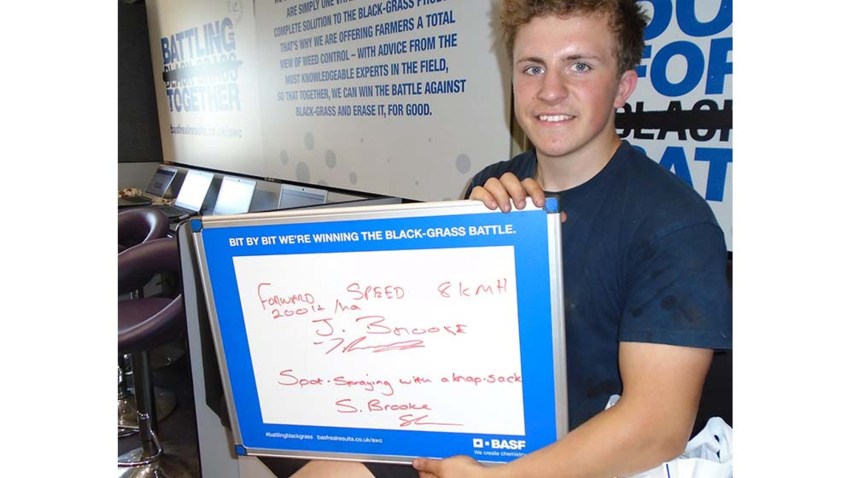 BATTLING
BLACK-GRASS
TOGETHER
basfrealresults.co.uk/awc
ARE SIMPLY ONE
COMPLETE SOLUTION TO THE BLACK-GRASS
THAT'S WHY WE ARE OFFERING FARMERS A TOTAL
VIEW OF WEED CONTROL – WITH ADVICE FROM THE
MOST KNOWLEDGEABLE EXPERTS IN THE FIELD,
SO THAT TOGETHER, WE CAN WIN THE BATTLE AGAINST
BLACK-GRASS AND ERASE IT, FOR GOOD.
FOR
BLACK
BAT
BIT BY BIT WE'RE WINNING THE BLACK-GRASS BATTLE.
FORWARD SPEED 8 KMH
200 lt /ha
J. BROOKE
Spot-Spraying with a knap-sack
S. Brooke
#battlingblackgrass basfrealresults.co.uk/awc
BASF
We create chemistry